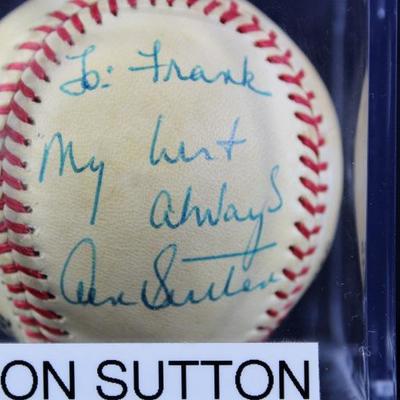 To: Frank
"My best
always
Don Sutton
ON SUTTON